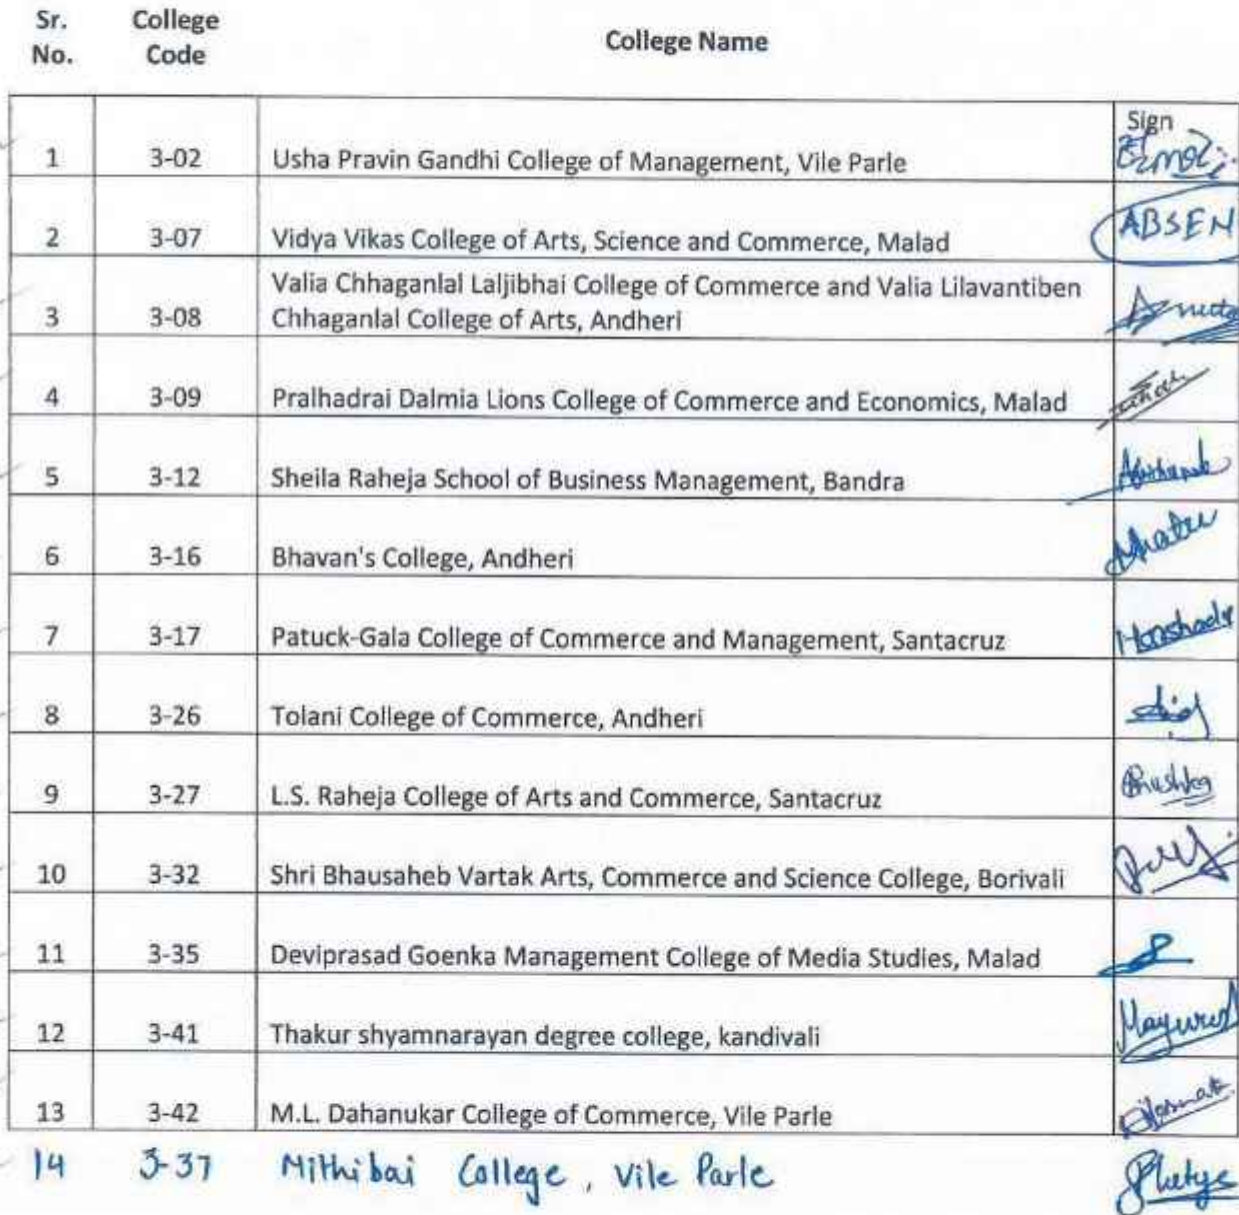 Sr. No. College Code College Name
Sign
1 3-02 Usha Pravin Gandhi College of Management, Vile Parle
2 3-07 Vidya Vikas College of Arts, Science and Commerce, Malad ABSEN
3 3-08 Valia Chhaganlal Laljibhai College of Commerce and Valia Lilavantiben
Chhaganlal College of Arts, Andheri
4 3-09 Pralhadrai Dalmia Lions College of Commerce and Economics, Malad
5 3-12 Sheila Raheja School of Business Management, Bandra
6 3-16 Bhavan's College, Andheri
7 3-17 Patuck-Gala College of Commerce and Management, Santacruz
8 3-26 Tolani College of Commerce, Andheri
9 3-27 L.S. Raheja College of Arts and Commerce, Santacruz
10 3-32 Shri Bhausaheb Vartak Arts, Commerce and Science College, Borivali
11 3-35 Deviprasad Goenka Management College of Media Studies, Malad
12 3-41 Thakur shyamnarayan degree college, kandivali
13 3-42 M.L. Dahanukar College of Commerce, Vile Parle
14 3-37 Mithibai College, Vile Parle